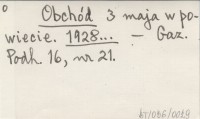 Obchód 3 maja w po-
wiecie. 1928... — Gaz.
Podh. 16, nr 21.